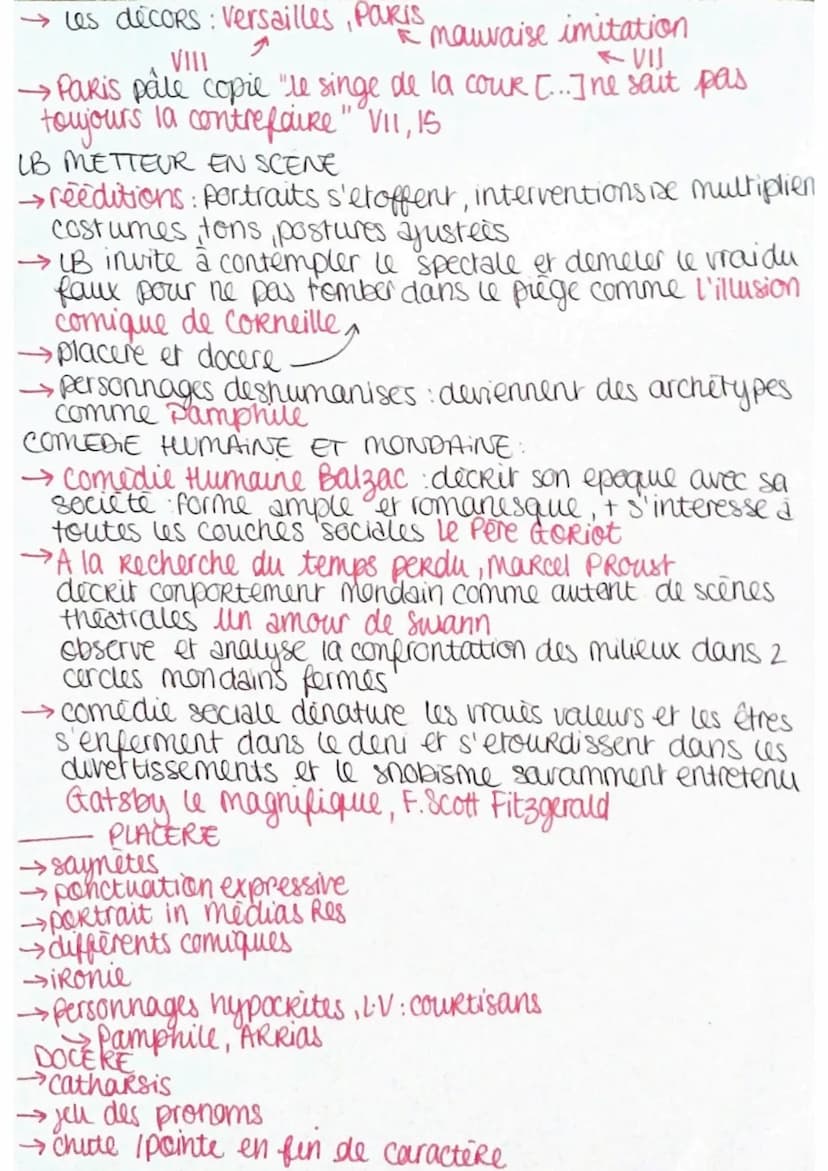 → les décors : Versailles, Paris
↖ mauvaise imitation
VIII ↗ ↖ VII
→ Paris pâle copie "le singe de la cour [...] ne sait pas
toujours la contrefaire" VII, 15
LB METTEUR EN SCÈNE
→ rééditions : portraits s'etoffent, interventions se multiplien
costumes, tons, postures ajustées
→ LB invite à contempler le spectale et demeler le vrai du
faux pour ne pas tomber dans le piège comme l'illusion
comique de Corneille
→ placere et docere
→ personnages deshumanises : deviennent des archétypes
comme Pamphile
COMEDIE HUMAINE ET MONDAINE :
→ Comédie Humaine Balzac : décrit son epoque avec sa
société : forme ample et romanesque, + s'interesse à
toutes les couches sociales Le Père Goriot
→ A la Recherche du temps perdu, Marcel Proust
décrit conportement mondain comme autant de scènes
théatrales Un amour de Swann
observe et analyse la confrontation des milieux dans 2
cercles mondains fermés
→ comédie sociale dénature les vraies valeurs et les êtres
s'enferment dans le deni et s'etourdissent dans les
divertissements et le snobisme savamment entretenu
Gatsby le magnifique, F. Scott Fitzgerald
PLACERE
→ saynètes
→ ponctuation expressive
→ portrait in médias Res
→ différents comiques
→ ironie
→ personnages hypocrites, L.V : courtisans
→ Pamphile, Arrias
DOCERE
→ catharsis
→ jeu des pronoms
→ chute / pointe en fin de caractère